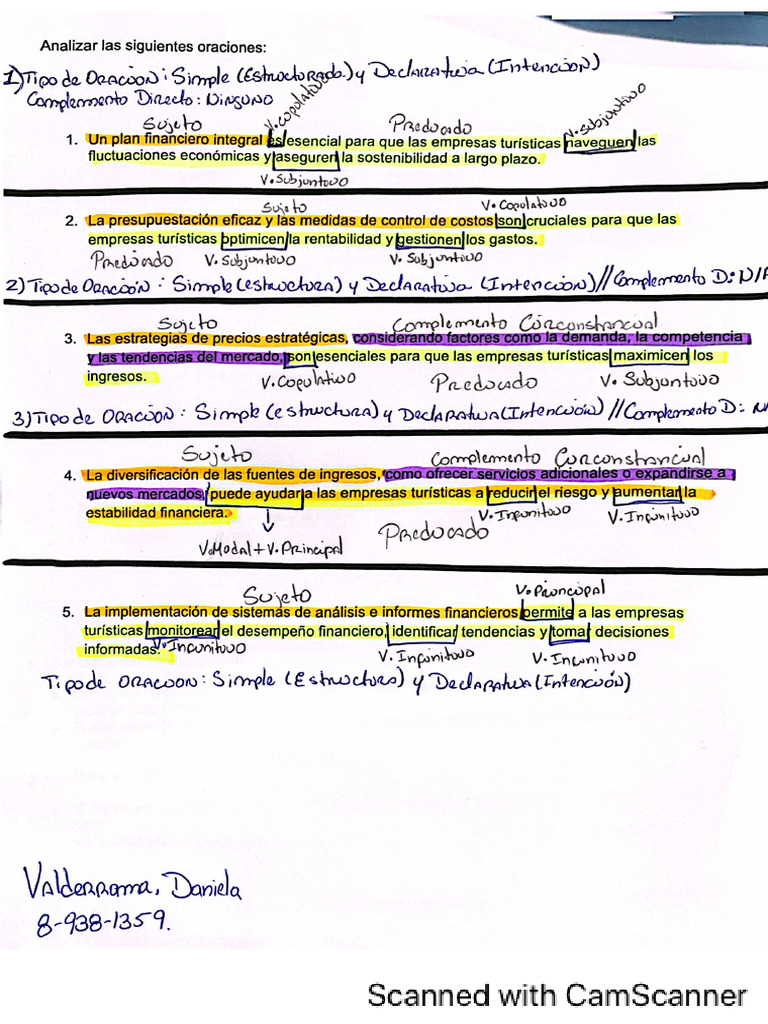 Analizar las siguientes oraciones:
1) Tipo de Oración: Simple (Estructurado.) y Declarativa (Intención)
Complemento Directo: Ninguno
Sujeto V. Copolativo Predicado V. Subjuntivo
1. Un plan financiero integral es esencial para que las empresas turísticas naveguen las
fluctuaciones económicas y aseguren la sostenibilidad a largo plazo.
V. Subjuntivo
Sujeto V. Copolativo
2. La presupuestación eficaz y las medidas de control de costos son cruciales para que las
empresas turísticas optimicen la rentabilidad y gestionen los gastos.
Predicado V. Subjuntivo V. Subjuntivo
2) Tipo de Oración: Simple (estructura) y Declarativa (Intención) // Complemento D: N/A
Sujeto Complemento Circonstancial
3. Las estrategias de precios estratégicas, considerando factores como la demanda, la competencia
y las tendencias del mercado, son esenciales para que las empresas turísticas maximicen los
ingresos. V. Copulativo Predicado V. Subjuntivo
3) Tipo de Oración: Simple (estructura) y Declarativa (Intención) // Complemento D: N
Sujeto Complemento Circonstancial
4. La diversificación de las fuentes de ingresos, como ofrecer servicios adicionales o expandirse a
nuevos mercados, puede ayudar a las empresas turísticas a reducir el riesgo y aumentar la
estabilidad financiera. Predicado V. Infinitivo V. Infinitivo
V. Modal + V. Principal
Sujeto V. Principal
5. La implementación de sistemas de análisis e informes financieros permite a las empresas
turísticas monitorear el desempeño financiero, identificar tendencias y tomar decisiones
informadas. V. Infinitivo V. Infinitivo V. Infinitivo
Tipo de Oración: Simple (Estructura) y Declarativa (Intención)
Valderrama, Daniela
8-938-1359.
Scanned with CamScanner